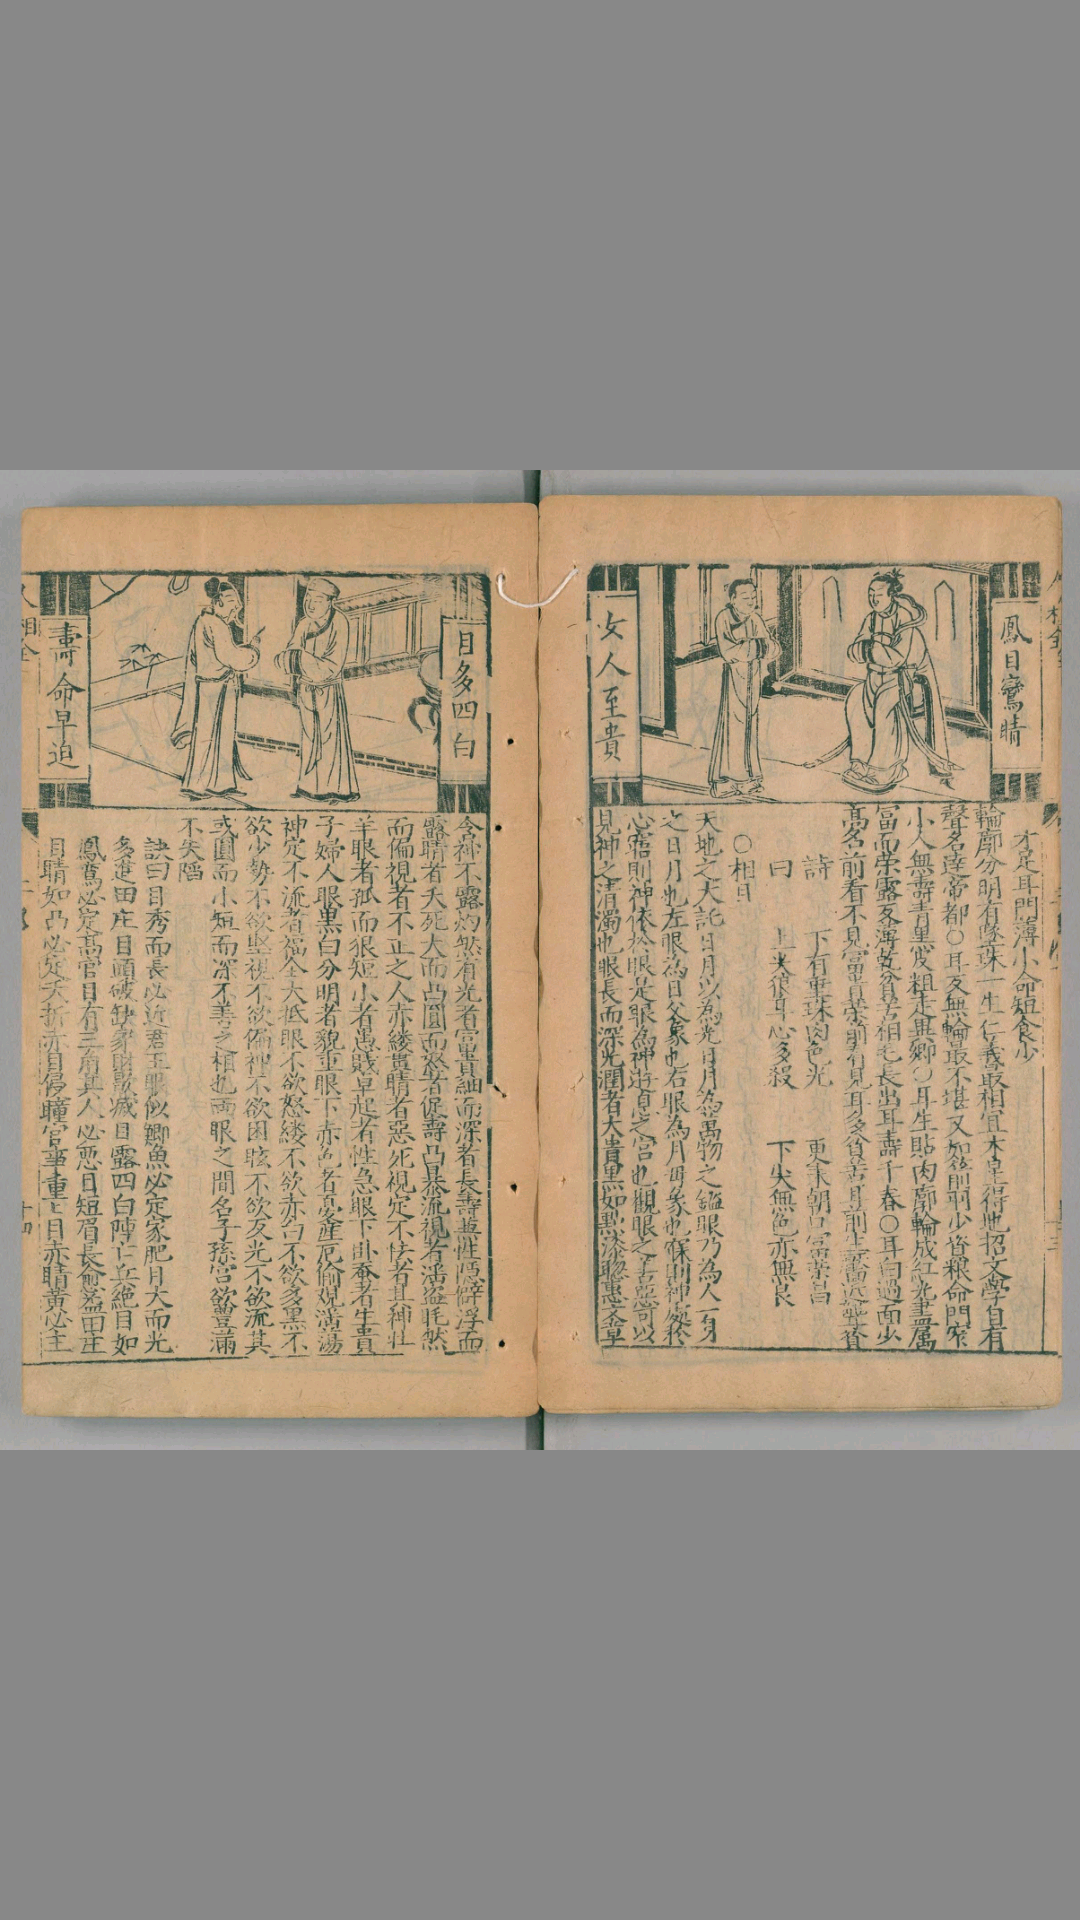 鳳目鸞睛
女人至貴
才足耳門薄小命短食少
輪廓分明有墜珠一生仁義最相宜木星得地招文學自有
聲名達帝都○耳反無輪最不堪又如箭羽少資粮命門窄
小人無壽青黑皮粗走異鄉○耳生貼肉廓輪成紅光盡属
冨而榮露反薄乾貧苦相毛長出耳壽千春○耳白過面少
高名前看不見冨貴榮前有見耳多貧苦耳前生
詩 下有垂珠肉色光 更來朝口冨榮昌
曰 上尖狼耳心多殺 下尖無色亦無良
○相目
天地之大託日月以為光日月為萬物之鑑眼乃為人一身
之日月也左眼為日父象也右眼為月母象也寐則神處於
心寤則神依於眼是眼為神遊息之宮也觀眼之善惡可以
見神之清濁也眼長而深光潤者大貴黒如點漆聰惠文章
目多四白
壽命早迫
含神不露灼然有光者富貴細而深者長壽蒹性隱僻浮而
露睛者夭死大而凸圓而怒者促壽凸暴流視者淫盜眊然
而偏視者不正之人赤縷貫睛者惡死視定不怯者其神壯
羊眼者孤而狠短小者愚賤卓起者性急眼下卧蚕者生貴
子婦人眼黒白分明者貌重眼下赤色者憂產厄偷視淫蕩
神定不流者福全大抵眼不欲怒縷不欲赤白不欲多黒不
欲少勢不欲竪視不欲偏神不欲困眩不欲反光不欲流其
或圓而小短而深不善之相也兩眼之間名子孫宮欲豐滿
不失陷
訣曰目秀而長必近君王眼似鯽魚必定家肥目大而光
多進田庄目頭破缺家財歇滅目露四白陣亡兵絕目如
鳳鸞必定高官目有三角其人必惡目短眉長愈益田庄
目睛如凸必定夭折赤目侵瞳官事重重目赤睛黃必主